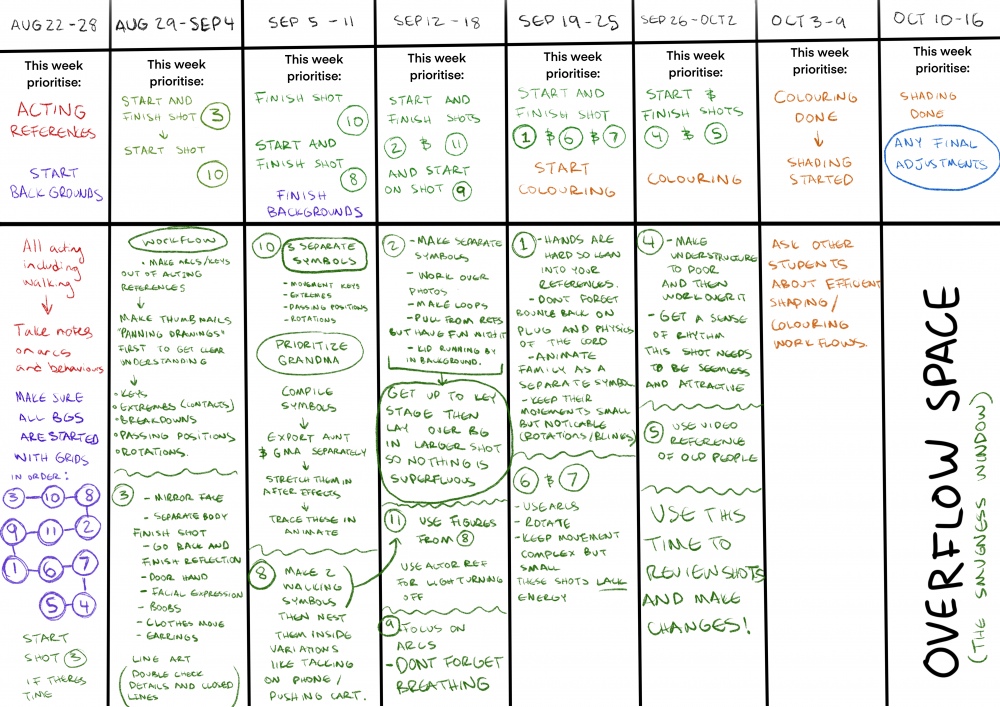 AUG 22-28
AUG 29-SEP 4
SEP 5-11
SEP 12-18
SEP 19-25
SEP 26-OCT 2
OCT 3-9
OCT 10-16
This week
prioritise:
ACTING
REFERENCES
START
BACKGROUNDS
This week
prioritise:
START AND
FINISH SHOT 3
START SHOT
10
This week
prioritise:
FINISH SHOT
10
START AND
FINISH SHOT
8
FINISH
BACKGROUNDS
This week
prioritise:
START AND
FINISH SHOTS
2 & 11
AND START
ON SHOT 9
This week
prioritise:
START AND
FINISH SHOT
1 & 6 & 7
START
COLOURING
This week
prioritise:
START &
FINISH SHOTS
4 & 5
COLOURING
This week
prioritise:
COLOURING
DONE
SHADING
STARTED
This week
prioritise:
SHADING
DONE
ANY FINAL
ADJUSTMENTS
All acting
including
walking
Take notes
on arcs
and behaviours
MAKE SURE
ALL BGS
ARE STARTED
WITH GRIDS
IN ORDER:
3 10 8
9 11 2
1 6 7
5 4
START
SHOT 3
IF THERES
TIME
WORKFLOW
• MAKE ARCS/KEYS
OUT OF ACTING
REFERENCES
MAKE THUMBNAILS
"PANNING DRAWINGS"
FIRST TO GET CLEAR
UNDERSTANDING
• KEYS
• EXTREMES (CONTACTS)
• BREAKDOWNS
• PASSING POSITIONS
• ROTATIONS.
3
- MIRROR FACE
- SEPARATE BODY
FINISH SHOT
- GO BACK AND
FINISH REFLECTION
- DOOR HAND
- FACIAL EXPRESSION
- BOOBS
- CLOTHES MOVE
- EARRINGS
LINE ART
(DOUBLE CHECK
DETAILS AND CLOSED
LINES
10 3 SEPARATE
SYMBOLS
- MOVEMENT KEYS
- EXTREMES
- PASSING POSITIONS
- ROTATIONS
PRIORITIZE
GRANDMA
COMPILE
SYMBOLS
EXPORT AUNT
& GMA SEPARATELY
STRETCH THEM IN
AFTER EFFECTS
TRACE THESE IN
ANIMATE
8 MAKE 2
WALKING
SYMBOLS
THEN NEST
THEM INSIDE
VARIATIONS
LIKE TALKING
ON PHONE/
PUSHING CART.
2 - MAKE SEPARATE
SYMBOLS
- WORK OVER
PHOTOS
- MAKE LOOPS
- PULL FROM REFS
BUT HAVE FUN WITH IT
- KID RUNNING BY
IN BACKGROUND.
GET UP TO KEY
STAGE THEN
LAY OVER BG
IN LARGER SHOT
SO NOTHING IS
SUPERFLUOUS
11 USE FIGURES
FROM 8
USE ACTOR REF
FOR LIGHT TURNING
OFF
9 - FOCUS ON
ARCS
- DONT FORGET
BREATHING
1 - HANDS ARE
HARD SO LEAN
INTO YOUR
REFERENCES.
- DONT FORGET
BOUNCE BACK ON
PLUG AND PHYSICS
OF THE CORD
- ANIMATE
FAMILY AS A
SEPARATE SYMBOL
- KEEP THEIR
MOVEMENTS SMALL
BUT NOTICABLE
(ROTATIONS/BLINKS)
6 & 7
- USE ARCS
- ROTATE
- KEEP MOVEMENT
COMPLEX BUT
SMALL
THESE SHOTS LACK
ENERGY
4 - MAKE
UNDERSTRUCTURE
TO DOOR
AND THEN
WORK OVER IT
- GET A SENSE
OF RHYTHM
THIS SHOT NEEDS
TO BE SEEMLESS
AND ATTRACTIVE
5 USE VIDEO
REFERENCE
OF OLD PEOPLE
USE THIS
TIME TO
REVIEW SHOTS
AND MAKE
CHANGES!
ASK OTHER
STUDENTS
ABOUT EFFIENT
SHADING/
COLOURING
WORKFLOWS.
OVERFLOW SPACE
(THE SMUGNESS WINDOW)